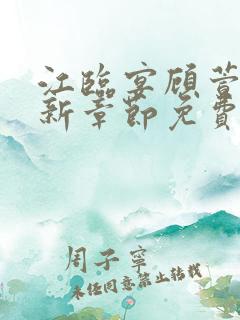 江臨宴顧萱
新章節免費
周子寧
未經同意禁止轉載